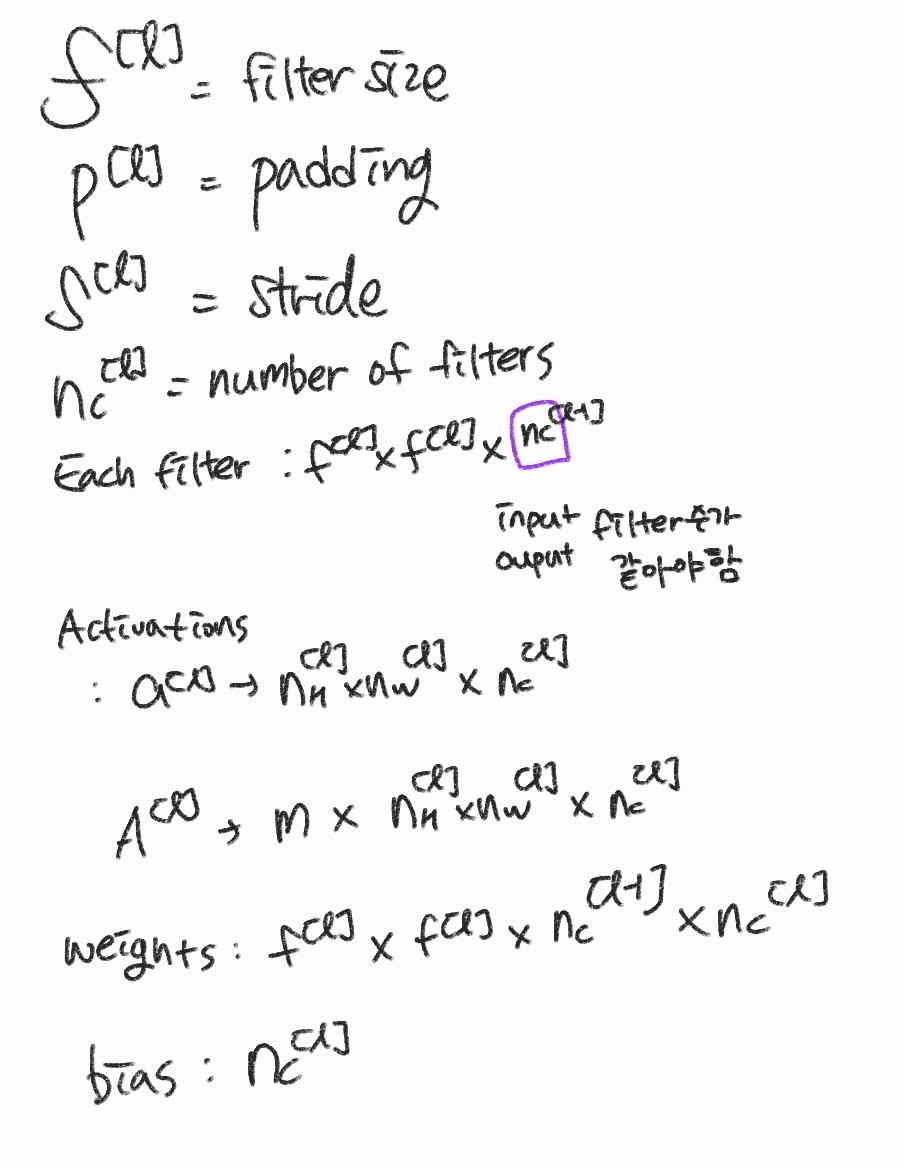 f^[l] = filter size
p^[l] = padding
s^[l] = stride
n_c^[l] = number of filters
Each filter : f^[l] × f^[l] × n_c^[l-1]
input filter수가
ouput 같아야함
Activations
: a^[l] → n_H^[l] × n_W^[l] × n_c^[l]
A^[l] → m × n_H^[l] × n_W^[l] × n_c^[l]
weights : f^[l] × f^[l] × n_c^[l-1] × n_c^[l]
bias : n_c^[l]